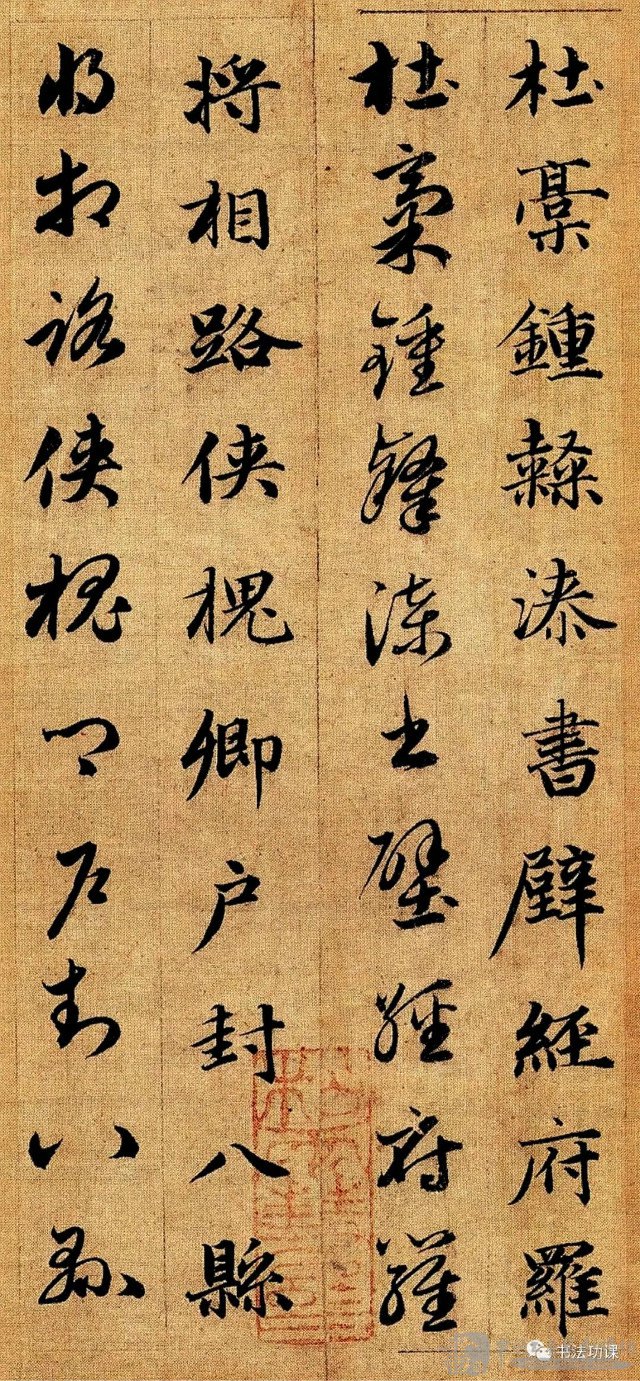 杜稾鍾隸漆書壁經府羅
杜稾鍾隸漆書壁經府羅
將相路俠槐卿户封八縣
將相路俠槐卿户封八縣
书法功课